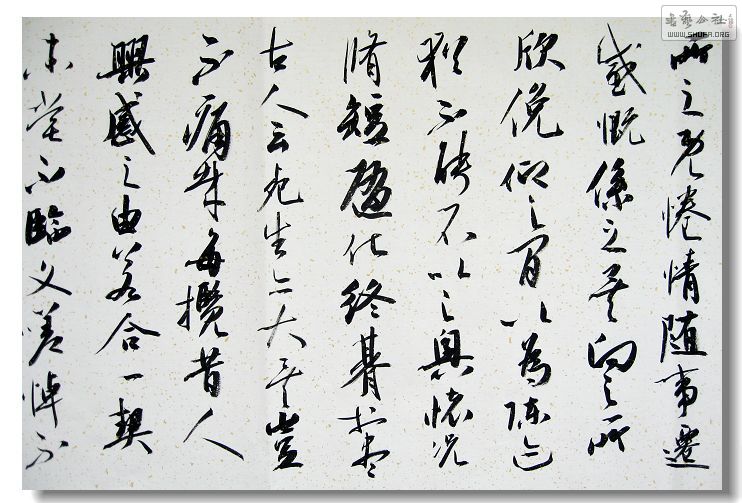 所之既惓情随事遷
感慨係之矣向之所
欣俛仰之間以為陳迹
猶不能不以之興懷况
脩短隨化終朞於盡
古人云死生亦大矣豈
不痛哉每攬昔人
興感之由若合一契
未嘗不臨文嗟悼不
書藝公社
WWW.SHUFA.ORG